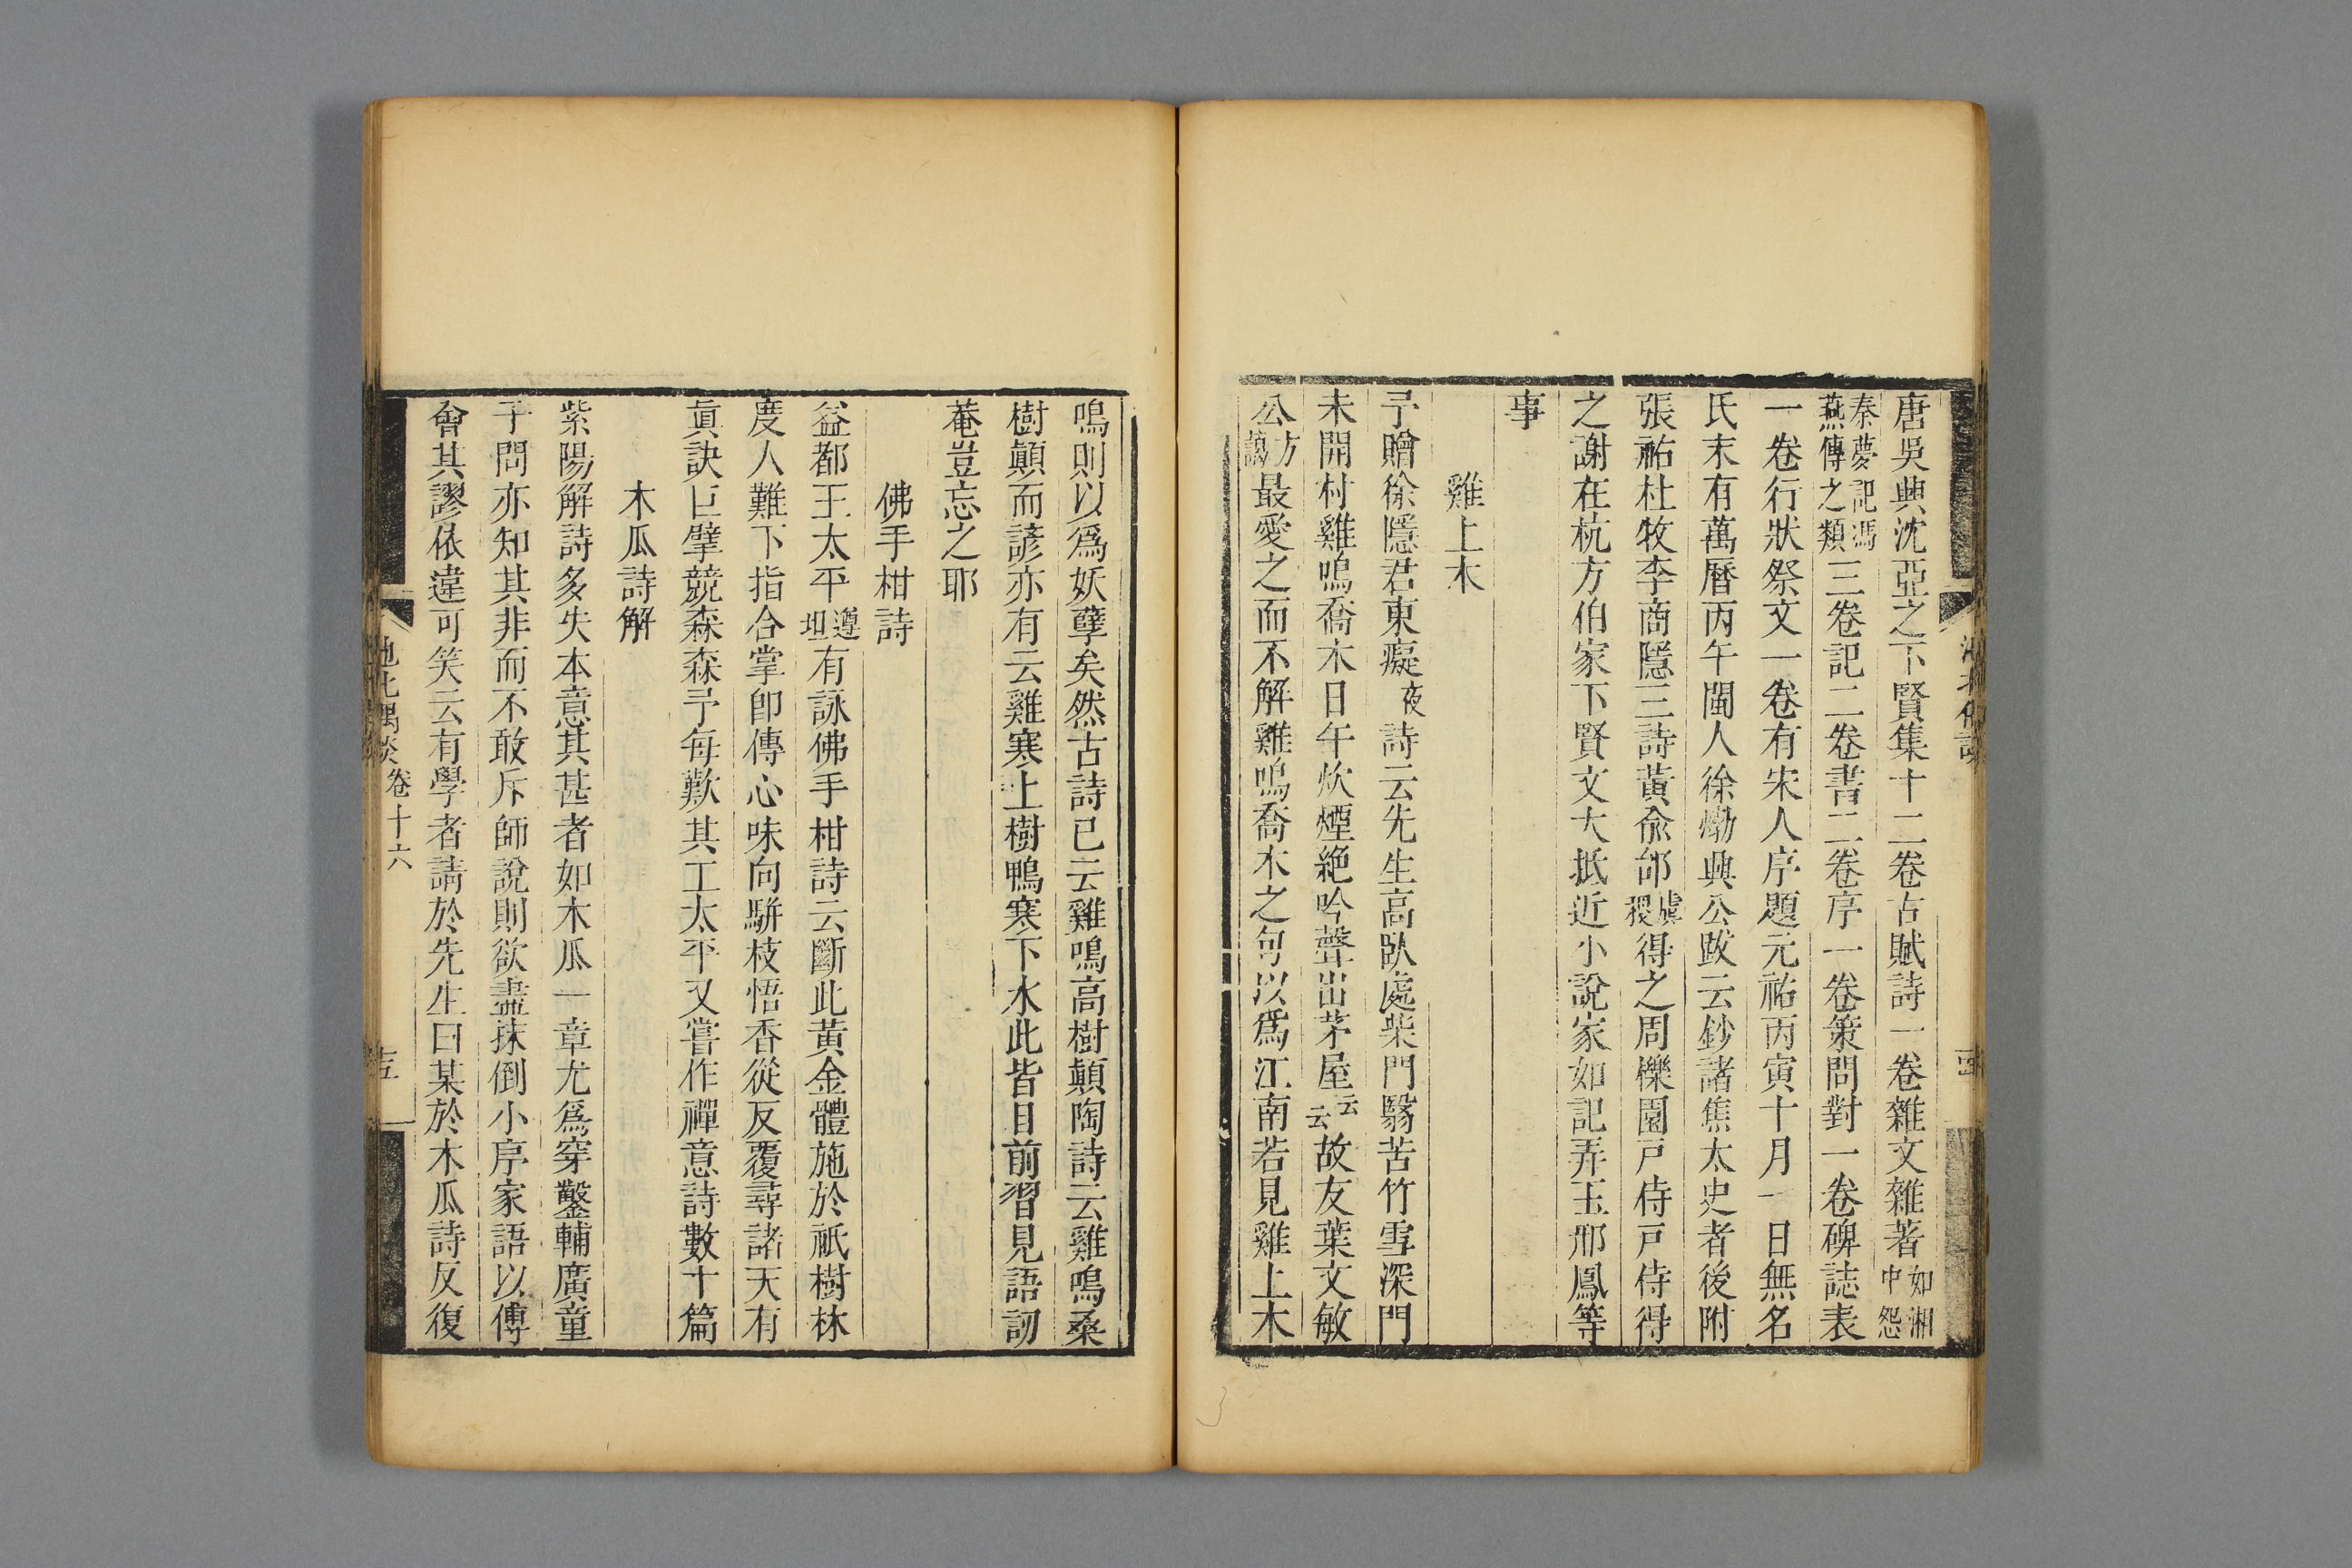 唐吳興沈亞之下賢集十二卷古賦詩一卷雜文雜著如湘中怨
秦夢記馮燕傳之類三卷記二卷書二卷序一卷策問對一卷碑誌表
一卷行狀祭文一卷有宋人序題元祐丙寅十月一日無名
氏末有萬曆丙午閩人徐𤊹興公跋云鈔諸焦太史者後附
張祜杜牧李商隱三詩黃俞邰虞稷得之周櫟園戸侍戸侍得
之謝在杭方伯家下賢文大抵近小說家如記弄玉邢鳳等
事
雞上木
予贈徐隱君東癡夜詩云先生高臥處柴門翳苦竹雪深門
未開村雞鳴喬木日午炊煙絕吟聲出茅屋云云故友葉文敏
公方藹最愛之而不解雞鳴喬木之句以爲江南若見雞上木
鳴則以爲妖孽矣然古詩已云雞鳴高樹顛陶詩云雞鳴桑
樹顛而諺亦有云雞寒上樹鴨寒下水此皆目前習見語訒
菴豈忘之耶
佛手柑詩
益都王太平遵坦有詠佛手柑詩云斷此黃金體施於祇樹林
度人難下指合掌卽傳心味向駢枝悟香從反覆尋諸天有
眞訣巨擘競森森予每歎其工太平又嘗作禪意詩數十篇
木瓜詩解
紫陽解詩多失本意其甚者如木瓜一章尤爲穿鑿輔廣童
子問亦知其非而不敢斥師說則欲盡抹倒小序家語以傅
會其謬依違可笑云有學者請於先生曰某於木瓜詩反復
池北偶談 卷十六 十五